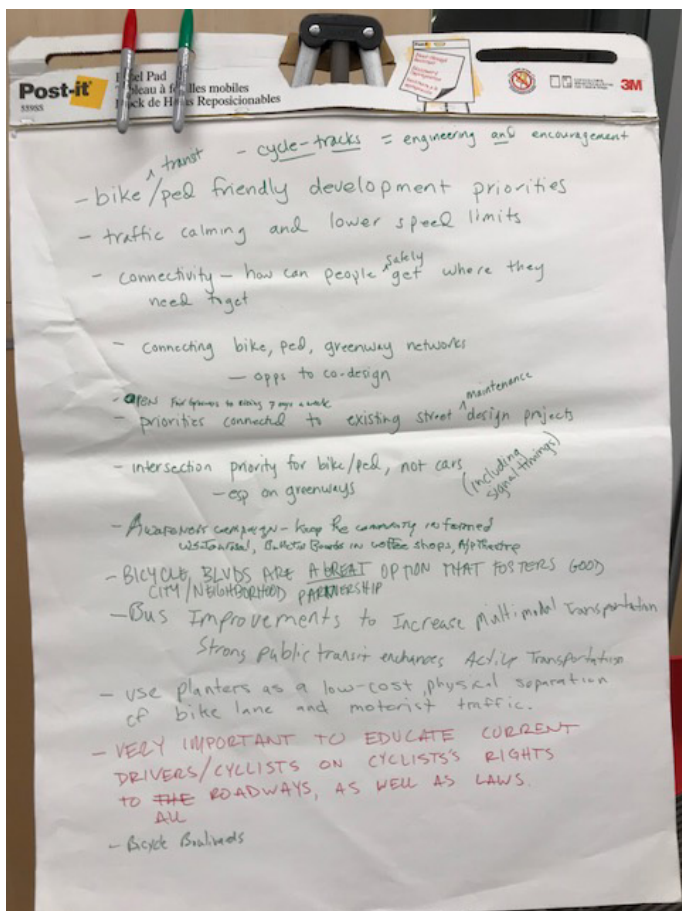 Post-it
Easel Pad
Tableau à feuilles mobiles
Block de Hojas Reposicionables
559SS
3M
^ transit - cycle-tracks = engineering and encouragement
- bike/ped friendly development priorities
- traffic calming and lower speed limits
- connectivity - how can people ^safely get where they
need to get
- connecting bike, ped, greenway networks
- opps to co-design
- OPEN 7 days a week
^ maintenance
- priorities connected to existing street design projects
- intersection priority for bike/ped, not cars (including signal timings)
- esp on greenways
- Awareness campaign - Keep the community informed
Bulletin Boards in coffee shops,
- BICYCLE BLVDS ARE A GREAT OPTION THAT FOSTERS GOOD
CITY/NEIGHBORHOOD PARTNERSHIP
- Bus Improvements to Increase Multimodal Transportation
Strong public transit enhances Active Transportation
- use planters as a low-cost, physical separation
of bike lane and motorist traffic.
- VERY IMPORTANT TO EDUCATE CURRENT
DRIVERS/CYCLISTS ON CYCLISTS'S RIGHTS
TO THE ROADWAYS, AS WELL AS LAWS.
ALL
- Bicycle Boulivards